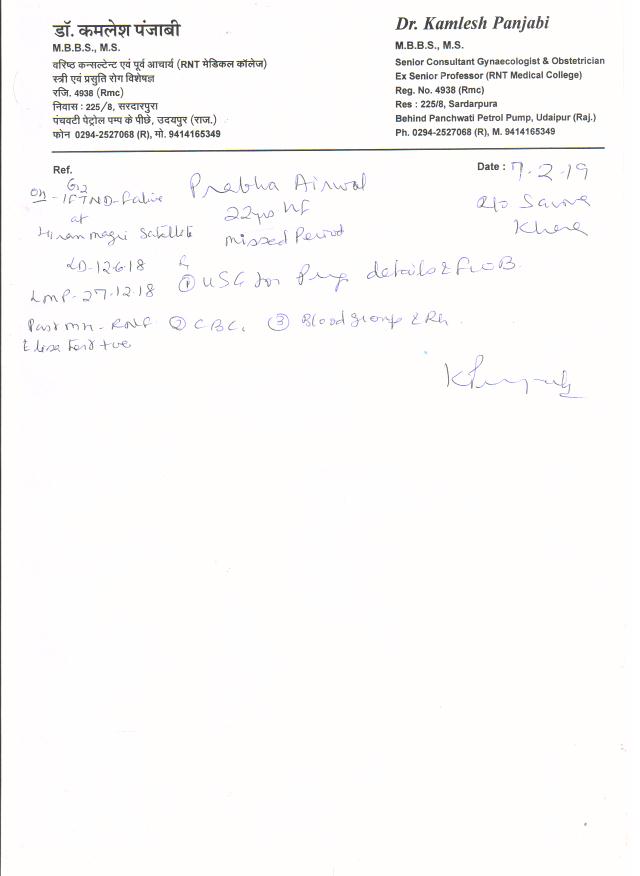 डॉ. कमलेश पंजाबी
M.B.B.S., M.S.
वरिष्ठ कन्सल्टेन्ट एवं पूर्व आचार्य (RNT मेडिकल कॉलेज)
स्त्री एवं प्रसुति रोग विशेषज्ञ
रजि. 4938 (Rmc)
निवास : 225/8, सरदारपुरा
पंचवटी पेट्रोल पम्प के पीछे, उदयपुर (राज.)
फोन 0294-2527068 (R), मो. 9414165349
Dr. Kamlesh Panjabi
M.B.B.S., M.S.
Senior Consultant Gynaecologist & Obstetrician
Ex Senior Professor (RNT Medical College)
Reg. No. 4938 (Rmc)
Res : 225/8, Sardarpura
Behind Panchwati Petrol Pump, Udaipur (Raj.)
Ph. 0294-2527068 (R), M. 9414165349
Ref.
Date : 7.2.19
G2
FTND
at
Hiran magri Satellite
LD-12.6.18
LMP-27.12.18
Prabha Airwal
22yrs
missed Period
① USG for Preg details
② CBC, ③ Blood group & Rh